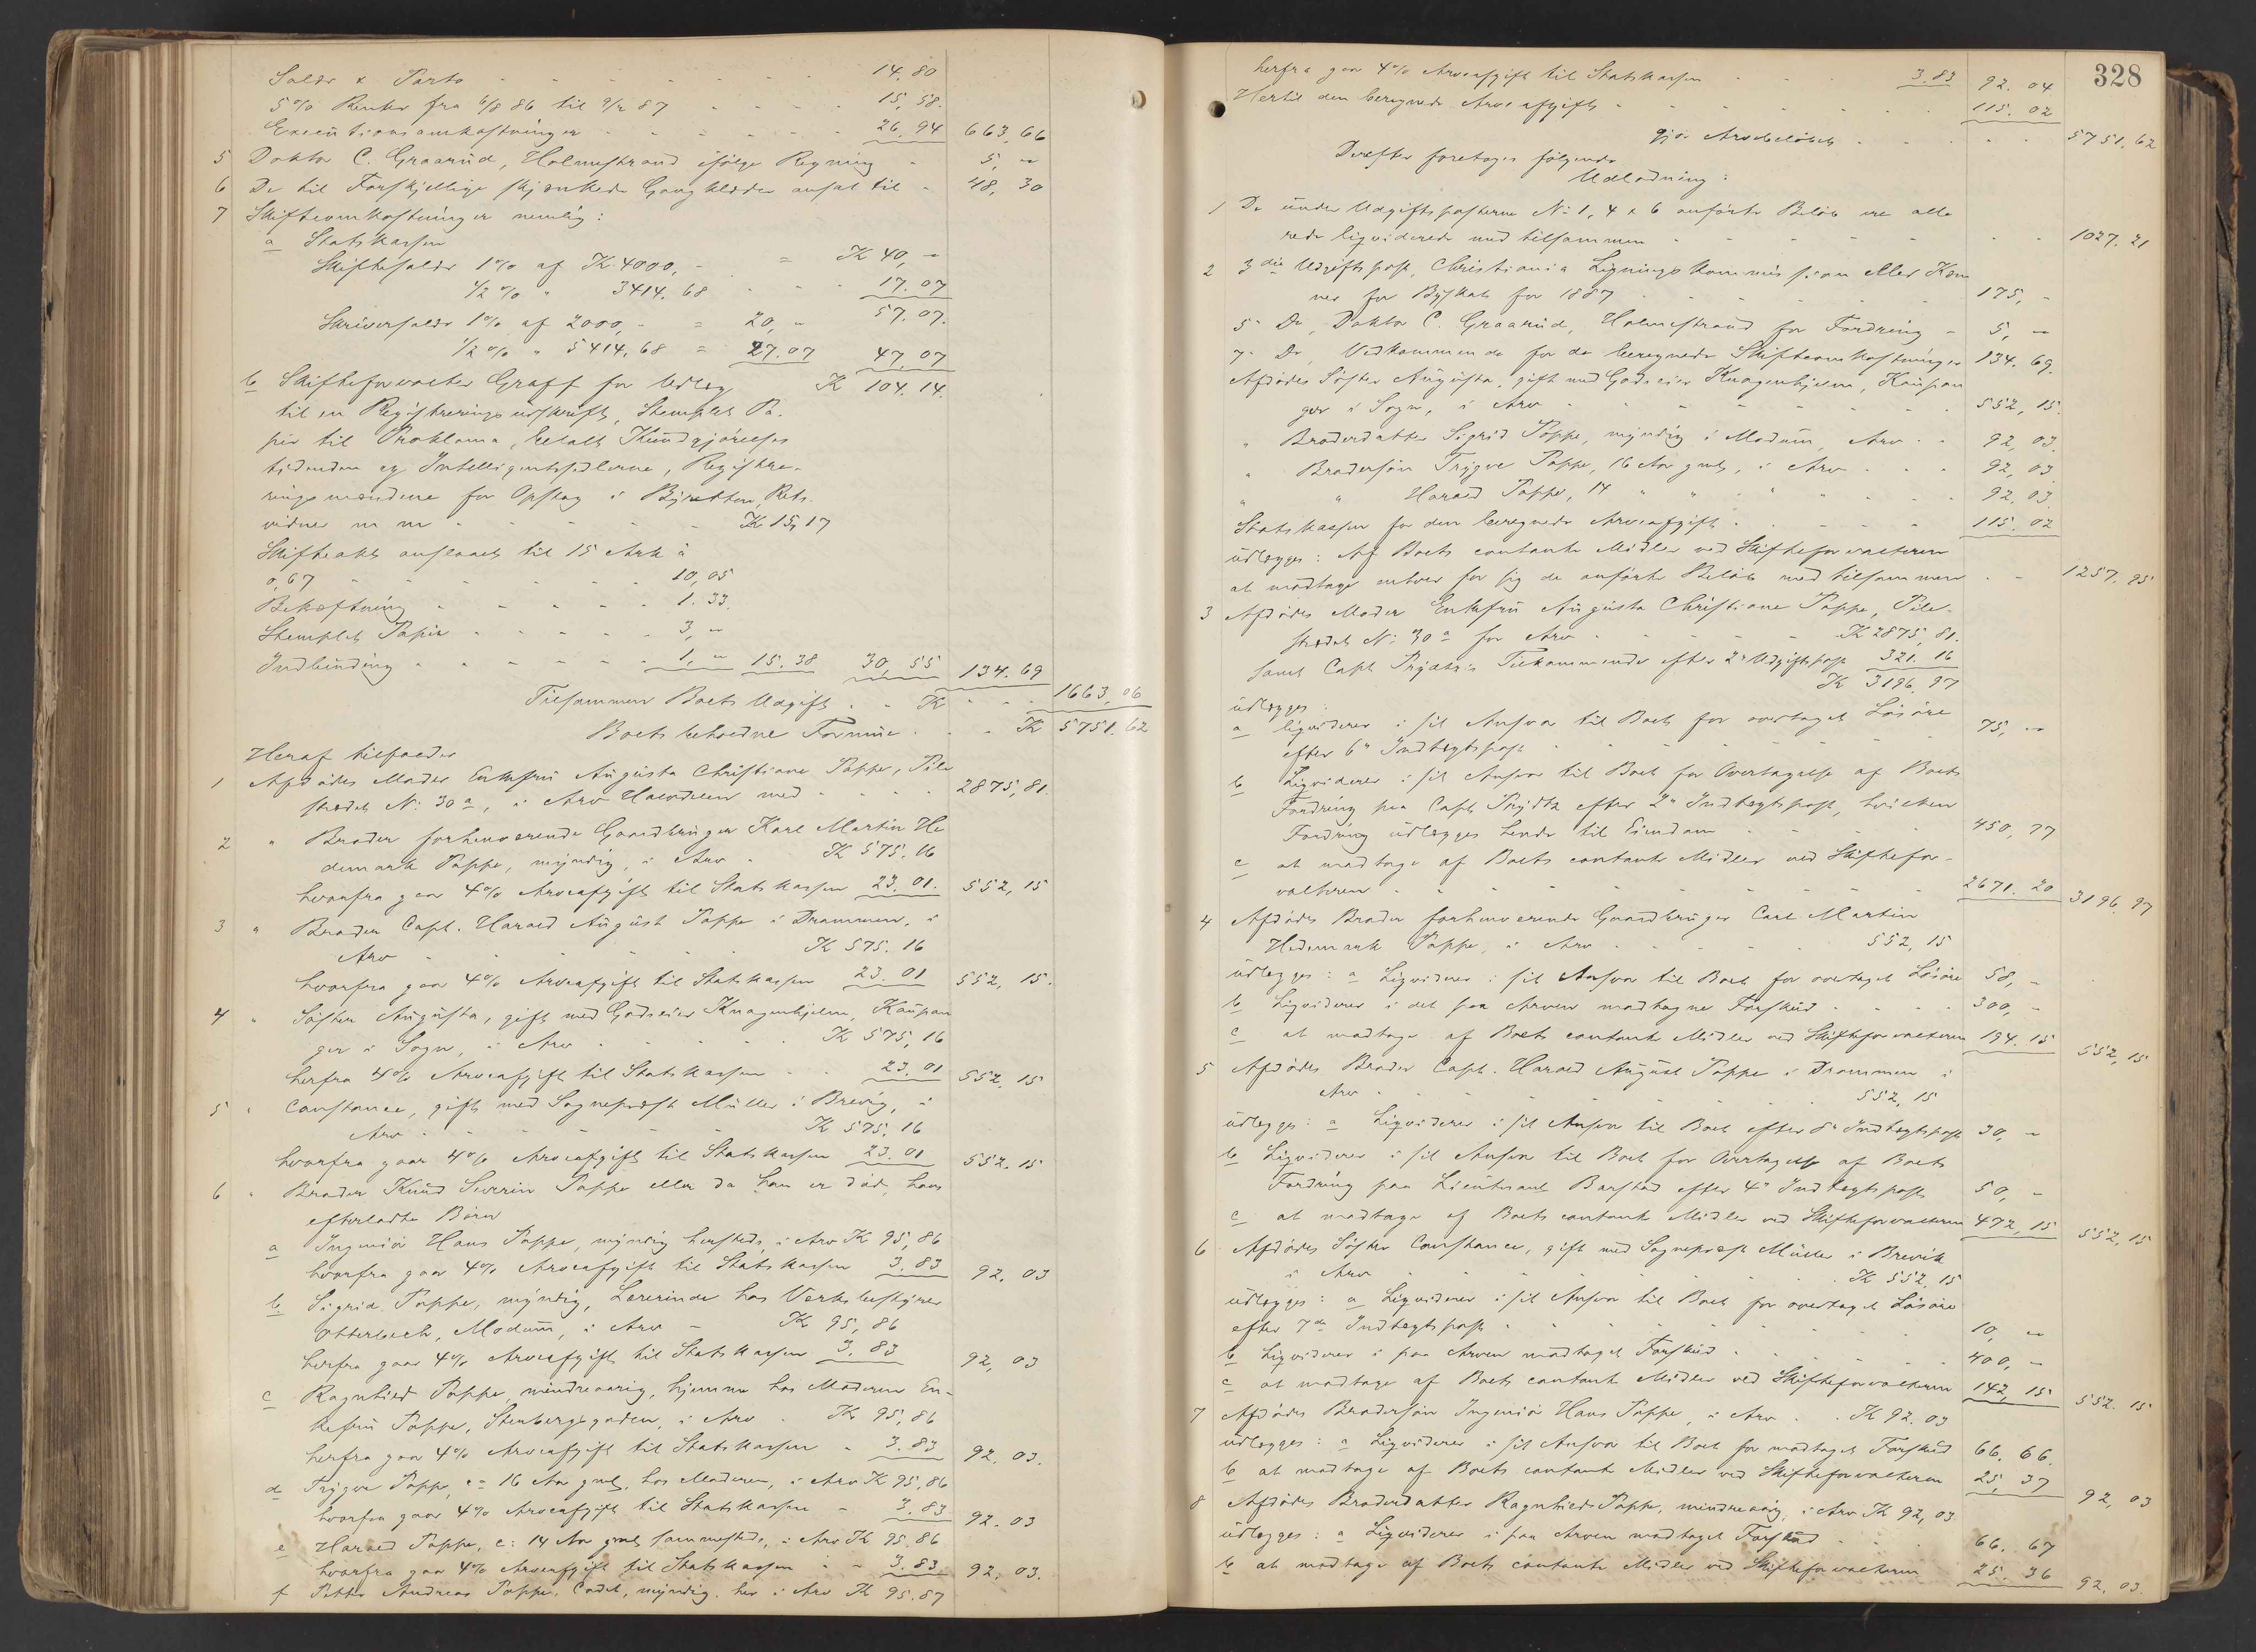 Salær & Porto - - - - - 14.80
5 % Renter fra 6/8 86 til 9/2 87 - - - - 15,58.
Executionsomkostninger - - - - 26.94 663,66
5 Doktor C. Graarud, Holmestrand ifølge Regning - 5, -
6 De til Forskjellige skjænkede Gangklæder ansat til - 48, 30
7 Skifteomkostninger nemlig:
a Statskassen
Skiftesalær 1 % af K. 4000, - = K 40, -
1/2 % " 3414.68 - - - 17.07
57.07.
Skriversalær 1 % af 2000, - = 20, -
1/2 % " 5414,68 = 27.07 47,07
b Skifteforvalter Graff for Udlæg K 104.14.
til en Registreringsudskrift, Stemplet Pa-
pir til Proklama, betalt Kundgjørelses
tidenden og Intelligentssedlerne, Registre-
ringsmændene for Opslag i Byretten, Rets-
vidner m m - - - - K 15,17
Skifteakt anslaaet til 15 Ark à
0,67 - - - - - 10,05
Bekræftning - - - - 1.33.
Stemplet Papir - - - - 3, -
Indbinding - - - - 1, - 15.38 30,55 134.69
Tilsammen Boets Udgift - - K - - 1663,06
Boets beholdne Formue - - - K 5751.62
Heraf tilfalder
1 Afdødes Moder Enkefru Augusta Christiane Poppe, Pile
strædet N: 30 a, i Arv Halvdelen med - - - 2875,81.
2 " Broder forhenværende Gaardbruger Karl Martin He
demark Poppe, myndig, i Arv - K 575.16
hvorfra gaar 4 % Arveafgift til Statskassen 23.01. 552,15
3 " Broder Capt. Harald August Poppe i Drammen, i
Arv - - - - - K 575.16
hvorfra gaar 4 % Arveafgift til Statskassen 23.01 552,15.
4 " Søster Augusta, gift med Godseier Knagenhjelm, Kaupan
ger i Sogn, i Arv - - - - K 575,16
herfra 4 % Arveafgift til Statskassen - - 23.01 552.15
5 " Constance, gift med Sogneprest Müller i Brevig, i
Arv - - - - - K 575.16
hvorfra gaar 4 % Arveafgift til Statskassen 23.01 552.15
6 " Broder Knud Sverrin Poppe eller da han er død, hans
efterladte Børn
a Ingeniør Hans Poppe, myndig hersteds, i Arv K 95,86
hvorfra gaar 4 % Arveafgift til Statskassen 3.83 92,03
b. Sigrid Poppe, myndig, Lærerinde hos Verksbestyrer
Otterbech, Modum, i Arv - K 95,86
herfra gaar 4 % Arveafgift til Statskassen 3.83 92,03
c Ragnhild Poppe, mindreaarig, hjemme hos Moderen En-
kefru Poppe, Stenbergsgaden, i Arv - K 95,86
herfra gaar 4 % Arveafgift til Statskassen - 3.83 92,03.
d Trygve Poppe, c: 16 Aar gml, hos Moderen, i Arv K 95,86
hvorfra gaar 4 % Arveafgift til Statskassen - 3.83 92.03
e Harald Poppe, c: 14 Aar gml sammesteds, i Arv K 95.86
hvorfra gaar 4 % Arveafgift til Statskassen - - 3.83 92,03.
f Petter Andreas Poppe, Cadet, myndig, her i Arv K 95.87
328
herfra gaar 4 % Arveafgift til Statskassen - - - 3.83 92.04
Hertil den beregnede Arveafgift - - - - - 115.02
gjør Arvebeløbet - - - - - 5751.62
Derefter foretages følgende
Udlodning:
1 De under Udgiftsposterne N: 1, 4 & 6 anførte Beløb ere alle
rede ligviderede med tilsammen - - - - - 1027.21
2 3die Udgiftspost, Christiania Ligningskommission eller Kæm
ner for Byskat for 1887 - - - - - 175, -
5" Do, Doktor C. Graarud, Holmestrand for Fordring - 5, -
7" Do, Vedkommende for de beregnede Skifteomkostninger 134.69.
Afdødes Søster Augusta, gift med Godseier Knagenhjelm, Kaupan
ger i Sogn, i Arv - - - - - 552,15.
" Broderdatter Sigrid Poppe, myndig i Modum, Arv - - 92,03.
" Brodersøn Trygve Poppe, 16 Aar gml, i Arv - - - 92,03
" " Harald Poppe, 14 " " " " - - - 92,03
Statskassen for den beregnede Arveafgift - - - - 115.02
udlægges: Af Boets contante Midler ved Skifteforvalteren
at modtage enhver for sig de anførte Beløb med tilsammen - - 1257.95
3 Afdødes Moder Enkefru Augusta Christiane Poppe, Pile-
strædet N: 30 a for Arv - - - - K 2875,81.
samt Capt Prydtz's Tilkommende efter 2" Udgiftspost 321.16
K 3196.97
udlægges:
a ligviderer i sit Ansvar til Boet for overtaget Løsøre
efter 6" Indtægtspost - - - - - 75, -
b Ligviderer i sit Ansvar til Boet for Overtagelse af Boets
Fordring paa Capt. Prydtz efter 2" Indtægtspost, hvilken
Fordring udlægges hende til Eiendom - - - 450,77
c at modtage af Boets contante Midler ved Skiftefor-
valteren - - - - - 2671.20 3196.97
4 Afdødes Broder forhenværende Gaardbruger Carl Martin
Hedemark Poppe, i Arv - - - - 552,15
udlægges: a Ligviderer i sit Ansvar til Boet for overtaget Løsøre 58, -
b Ligviderer i det paa Arven modtagne Forskud - - - 300, -
c at modtage af Boets contante Midler ved Skifteforvalteren 194.15 552,15
5 Afdødes Broder Capt. Harald August Poppe i Drammen i
Arv - - - - - 552,15
udlægges: a Ligviderer i sit Ansvar til Boet efter 8" Indtægtspost 30, -
b Ligviderer i sit Ansvar til Boet for Overtagelse af Boets
Fordring paa Lieutenant Barstad efter 4" Indtægtspost 50, -
c at modtage af Boets contante Midler ved Skifteforvalteren 472,15 552,15
6 Afdødes Søster Constance, gift med Sogneprest Müller i Brevik
i Arv - - - - - K 552.15
udlægges: a Ligviderer i sit Ansvar til Boet for overtaget Løsøre
efter 7de Indtægtspost - - - - - 10, -
b Ligviderer i paa Arven modtaget Forskud - - - - 400, -
c at modtage af Boets contante Midler ved Skifteforvalteren 142,15 552.15
7 Afdødes Brodersøn Ingeniør Hans Poppe, i Arv - - K 92.03
udlægges: a Ligviderer i sit Ansvar til Boet for modtaget Forskud 66.66.
b at modtage af Boets contante Midler ved Skifteforvalteren 25,37 92,03
8 Afdødes Broderdatter Ragnhild Poppe, mindreaarig, i Arv K 92,03
udlægges: a Ligviderer i paa Arven modtaget Forskud - - - 66.67
b at modtage af Boets contante Midler ved Skifteforvalteren 25.36 92,03.